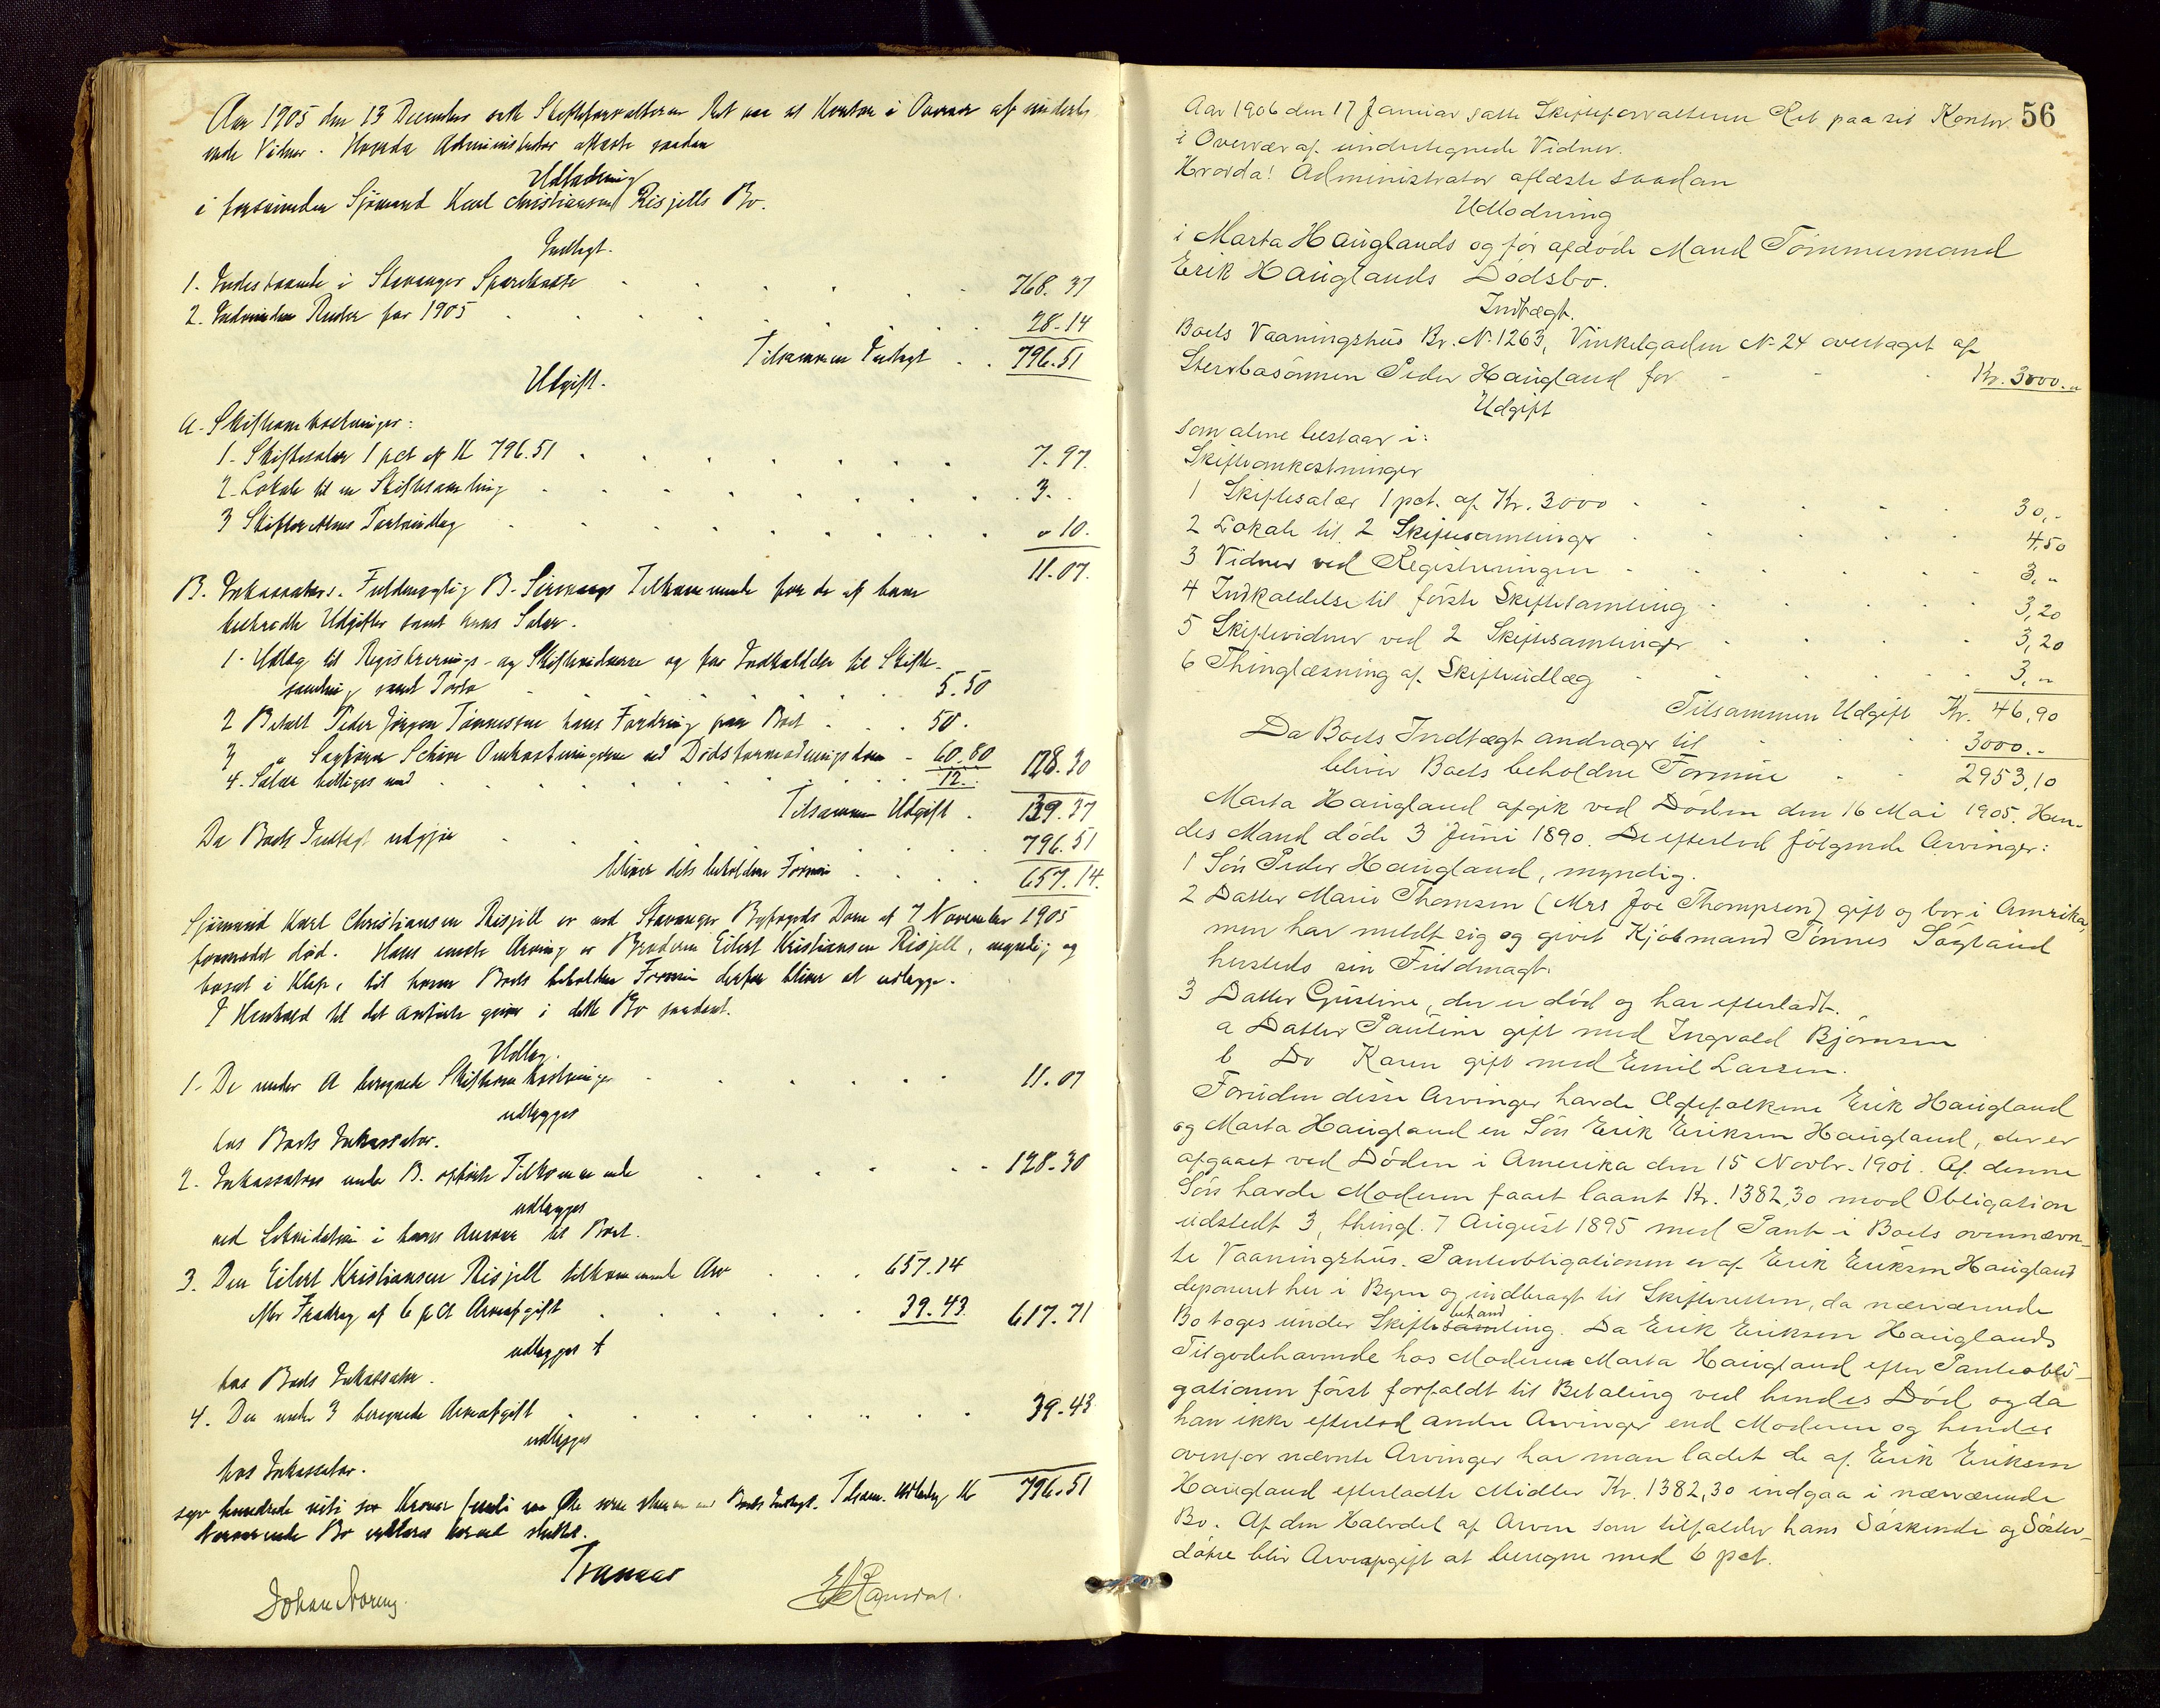 Aar 1905 den 13 December satte Skifteforvalteren Ret paa sit Kontor i Overvær af underteg-
nede Vidner. Hvorda Administrator aflæste saadan
Udlodning
i forsvundne Sjømand Karl Christiansen Risjells Bo.
Indtægt.
1. Indestaaende i Stavanger Sparekasse 768.37
2. Indvundne Renter for 1905 28.14
Tilsammen Indtægt 796.51
Udgift.
A. Skifteomkostninger:
1. Skiftesalær 1 pct af Kr 796.51 7.97.
2. Lokale til en Skiftesamling 3.
3 Skifterettens Portoudlæg " 10.
11.07.
B. Inkassator, Fuldmægtig B. Tilkommende for de af ham
bestridte Udgifter samt hans Salær.
1. Udlæg til Registrerings- og Skiftevidnerne og for Indkaldelse til Skifte-
samling samt Porto 5.50
2 Betalt Peder Jørgen Tønnessen hans Fordring paa Boet 50.
3 " Sagfører Schiøn Omkostningerne ved Dødsformodningsdom 60.80
4. Salær billiges med 12. 128.30
Tilsammen Udgift 139.37
Da Boets Indtægt udgjør 796.51
bliver dets beholdne Formue 657.14.
Sjømand Karl Christiansen Risjell er ved Stavanger Byfogeds Dom af 7 November 1905
formodet død. Hans eneste Arving er Broderen Eilert Kristiansen Risjell, myndig og
bosat i Klep, til hvem Boets beholdne Formue derfor bliver at udlægge.
I Henhold til det anførte gives i dette Bo saadant.
Udlæg.
1. De under A beregnede Skifteomkostninger 11.07
udlægges
hos Boets Inkassator.
2. Inkassators under B. opførte Tilkommende 128.30
udlægges
ved Likvidation i hans Ansvar til Boet.
3. Den Eilert Kristiansen Risjell tilkommende Arv 657.14
Med Fradrag af 6 pct Arveafgift 39.43. 617.71
udlægges
hos Boets Inkassator.
4. Den under 3 beregnede Arveafgift 39.43
udlægges
hos Inkassator.
syv hundrede niti sex Kroner femti en Øre som Boets Indtægt. Tilsam. Udlæg Kr 796.51
Nærværende Bo erklæres hermed sluttet.
Johan Noreng.
56
Aar 1906 den 17 Januar satte Skifteforvalteren Ret paa sit Kontor
i Overvær af undertegnede Vidner.
Hvorda! Administrator aflæste saadan
Udlodning
i Marta Hauglands og før afdøde Mand Tømmermand
Erik Hauglands Dødsbo.
Indtægt.
Boets Vaaningshus Br. No 1263, Vinkelgaden No 24 overtaget af
Stervbosønnen Peder Haugland for Kr. 3000.-
Udgift
som alene bestaar i:
Skifteomkostninger
1 Skiftesalær 1 pct. af Kr. 3000 30,-
2 Lokale til 2 Skiftesamlinger 4,50
3 Vidner ved Registreringen 3,-
4 Indkaldelse til første Skiftesamling 3,20
5 Skiftevidner ved 2 Skiftesamlinger 3,20
6 Thinglæsning af Skifteudlæg 3,-
Tilsammen Udgift Kr. 46,90
Da Boets Indtægt andrager til 3000.-
bliver Boets beholdne Formue 2953,10
Marta Haugland afgik ved Døden den 16 Mai 1905. Hen-
des Mand døde 3 Juni 1890. De efterlod følgende Arvinger:
1 Søn Peder Haugland, myndig.
2 Datter Marie Thomsen (Mrs Joe Thompson) gift og bor i Amrika,
men har meldt sig og givet Kjøbmand Tønnes Søgland
hersteds sin Fuldmagt.
3 Datter Gustine, der er død og har efterladt.
a Datter Pauline gift med Ingvald Bjørnsen
b Do Karen gift med Emil Larsen.
Foruden disse Arvinger havde Ægtefolkene Erik Haugland
og Marta Haugland en Søn Erik Eriksen Haugland, der er
afgaaet ved Døden i Amerika den 15 Novbr. 1901. Af denne
Søn havde Moderen faaet laant Kr. 1382,30 mod Obligation
udstedt 3, thingl. 7 August 1895 med Pant i Boets ovennævn-
te Vaaningshus. Panteobligationen er af Erik Eriksen Haugland
deponeret her i Byen og indbragt til Skifteretten, da nærværende
Bo toges under Skiftebehandling. Da Erik Eriksen Hauglands
Tilgodehavende hos Moderen Marta Haugland efter Panteobli-
gationen først forfaldt til Betaling ved hendes Død, og da
han ikke efterlod andre Arvinger end Moderen og hendes
ovenfor nævnte Arvinger har man ladet de af Erik Eriksen
Haugland efterladte Midler Kr. 1382,30 indgaa i nærværende
Bo. Af den Halvdel af Arven som tilfalder hans Søskende og Søster-
døtre blir Arveafgift at beregne med 6 pct.